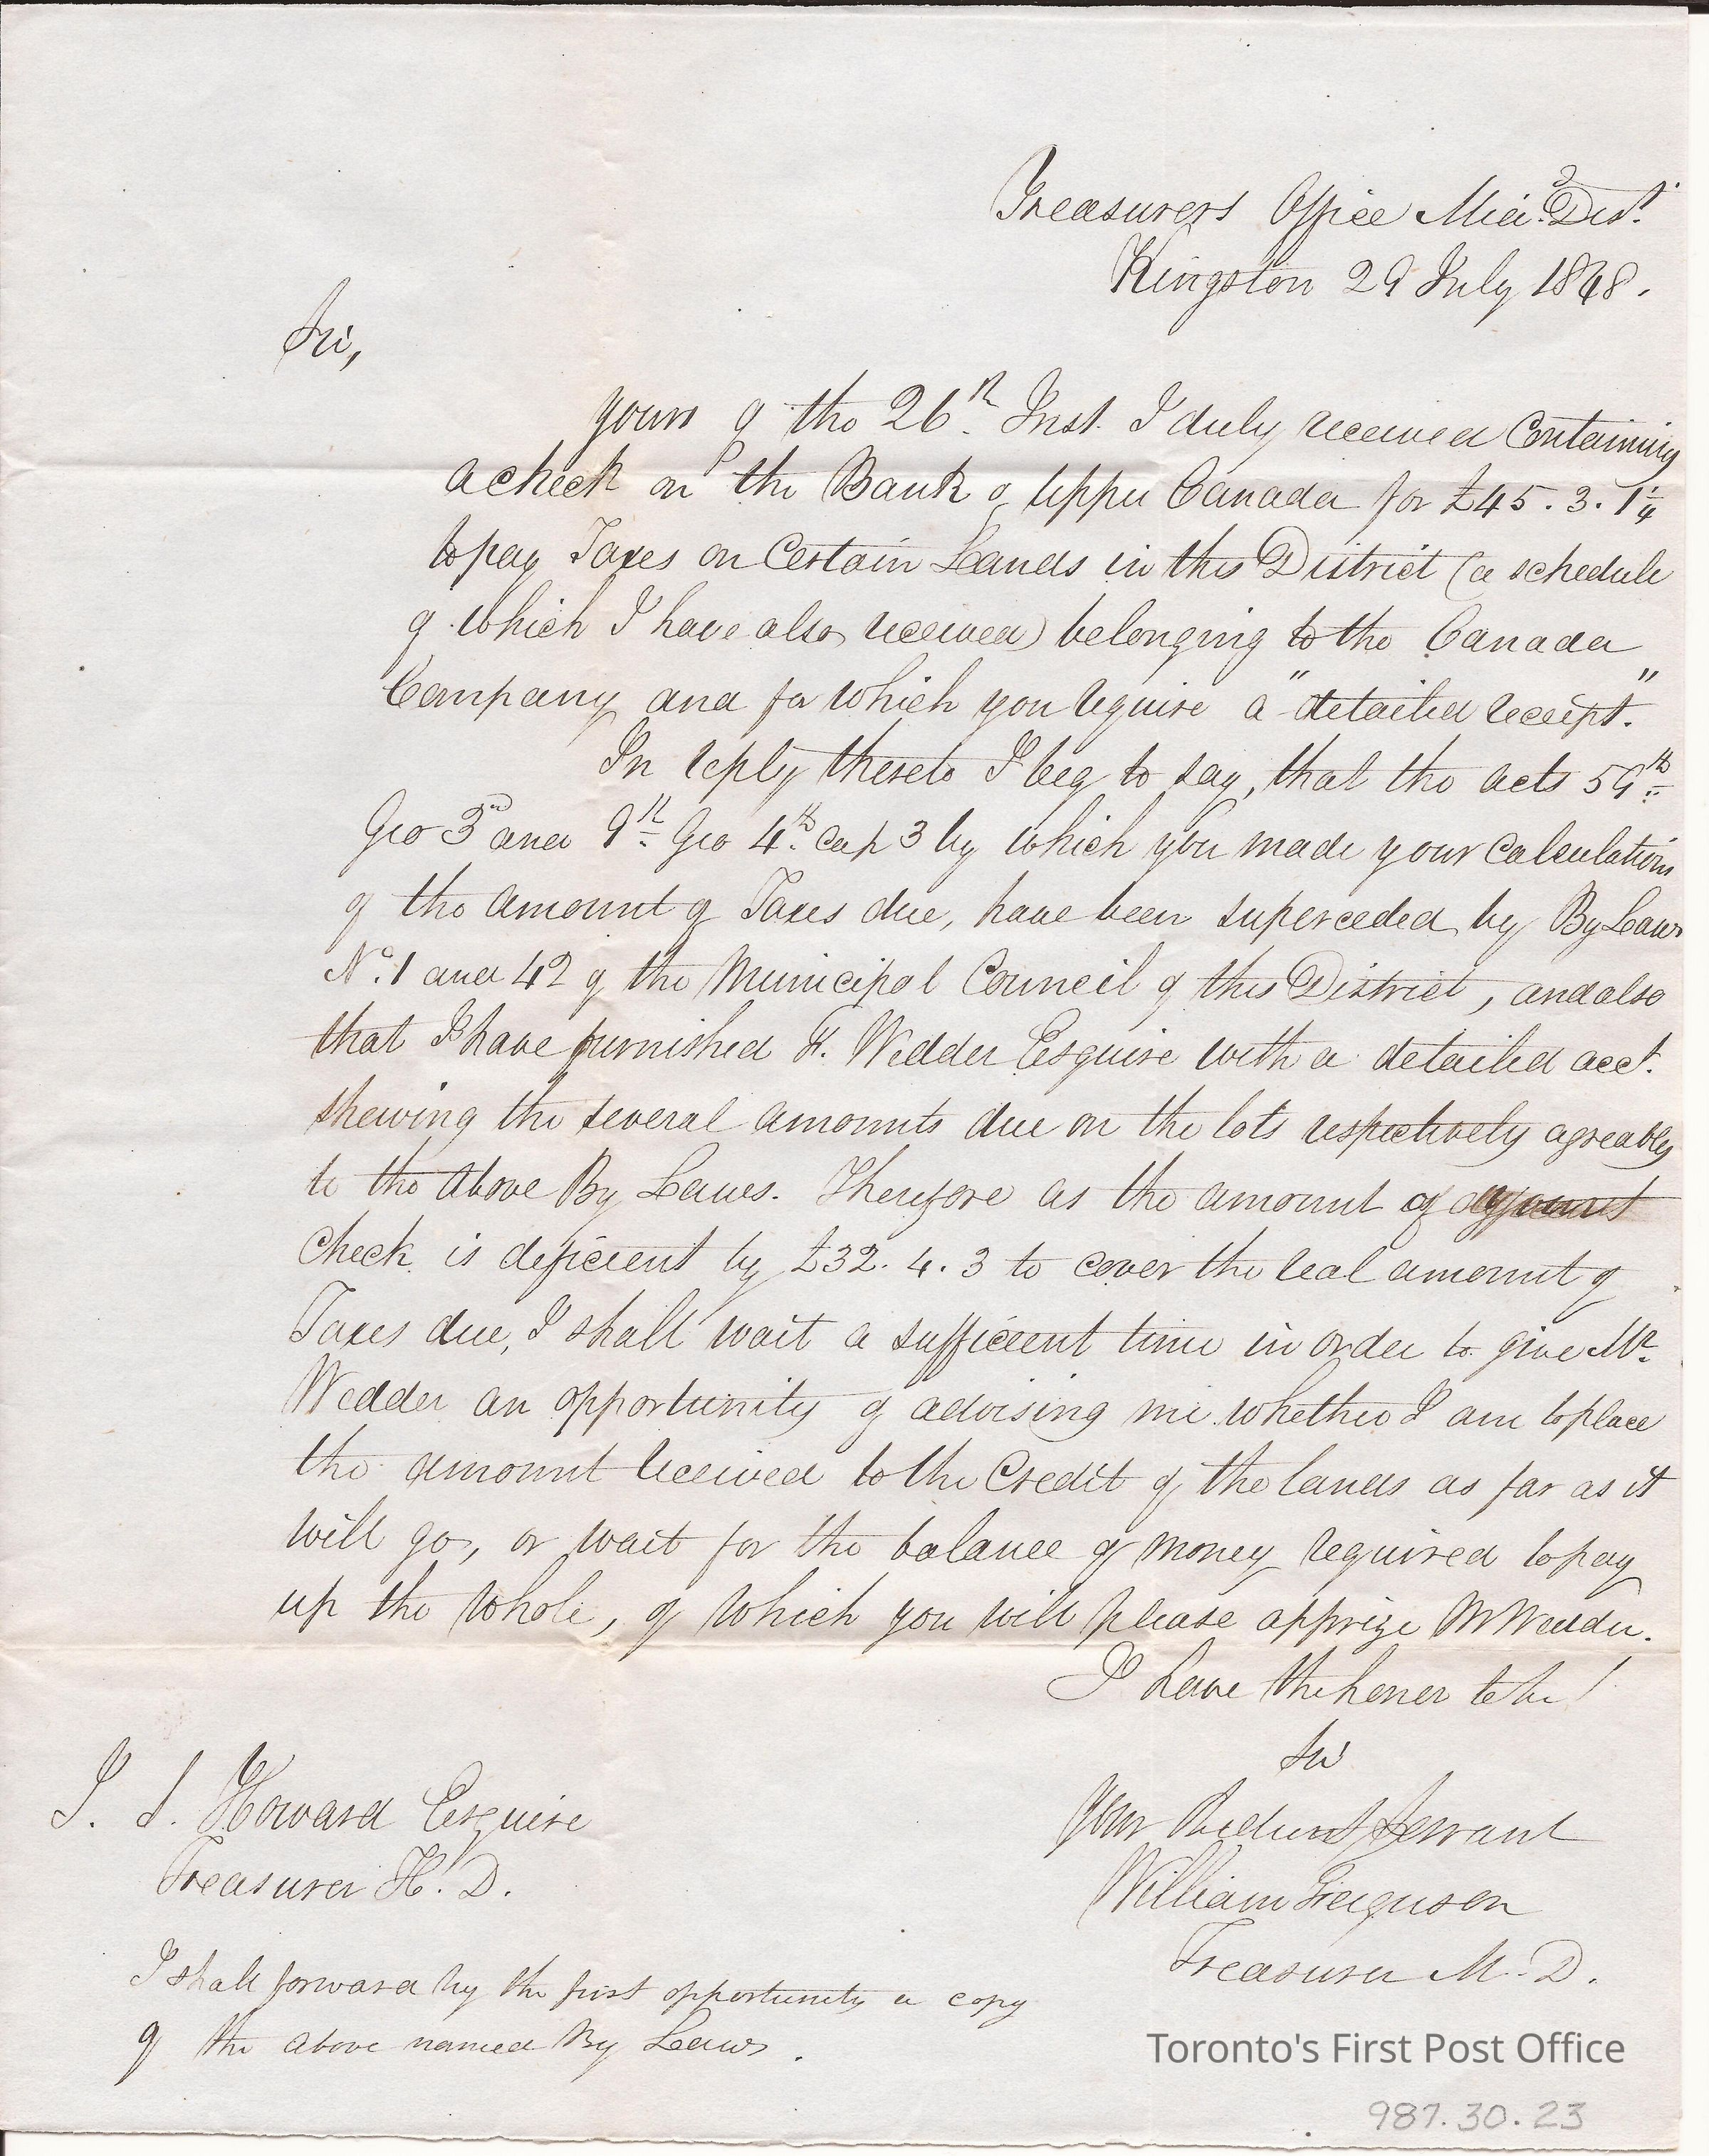 Treasurers Office Mid. Dist.
Kingston 29 July 1848.
Sir,
Yours of the 26th Inst. I duly received Containing
a check on the Bank of Upper Canada for £45.3.1¼
to pay Taxes on Certain Lands in this District (a schedule
of which I have also received) belonging to the Canada
Company and for which you require a "detailed receipt."
In reply thereto I beg to say, that the acts 59th
Geo 3rd and 9th Geo 4th Cap 3 by which you made your Calculation
of the Amount of Taxes due, have been superceded by By Laws
No. 1 and 42 of the Municipal Council of this District, and also
that I have furnished F. Widder Esquire with a detailed acct.
shewing the several amounts due on the lots respectively agreably
to the Above By Laws. Therefore as the amount of
Check is deficient by £32.4.3 to cover the real amount of
Taxes due, I shall wait a sufficient time in order to give Mr.
Widder an opportunity of advising me whether I am to place
the amount received to the Credit of the lands as far as it
will go, or wait for the balance of money required to pay
up the whole, of which you will please apprize Mr Widder.
I have the honor to be
Sir
Your Obedient Servant
William Ferguson
Treasurer M. D.
J. S. Howard Esquire
Treasurer H. D.
I shall forward by the first opportunity a copy
of the above named By Laws.
Toronto's First Post Office
987.30.23